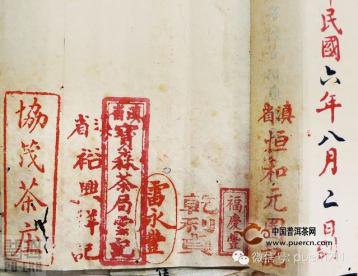 民國六年八月二日
滇省
恒和元
福慶豐
乾利貞
雷永豐
滇省
寶森茶局
雲記
滇省
裕興祥記
協茂茶庄
中国普洱茶网
www.puercn.com